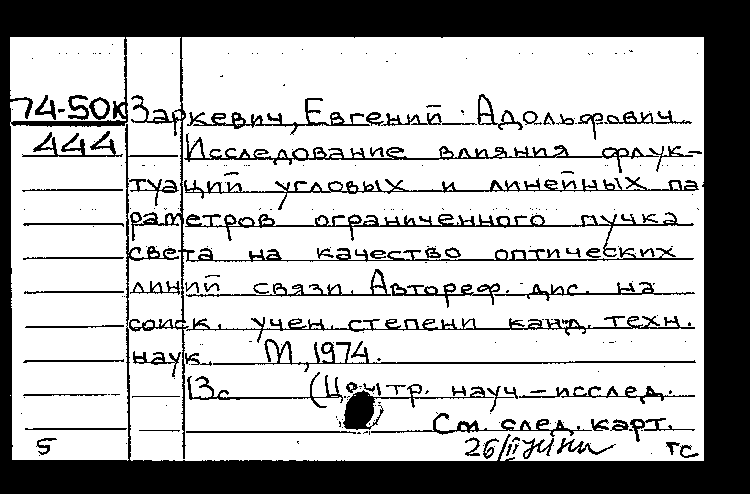 74-50к Заркевич, Евгений Адольфович
444 Исследование влияния флук-
туаций угловых и линейных па-
раметров ограниченного пучка
света на качество оптических
линий связи. Автореф. дис. на
соиск. учен. степени канд. техн.
наук. М., 1974.
13с. (Центр. науч-исслед.
См. след. карт.
5 26/II тс